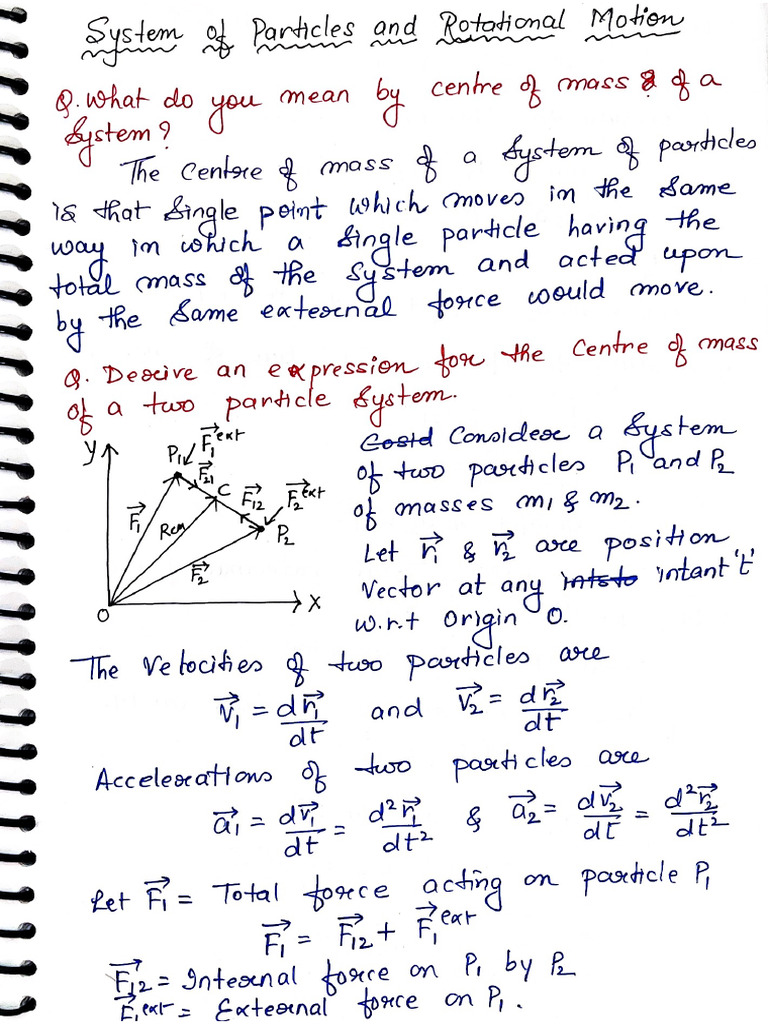 System of Particles and Rotational Motion
Q. What do you mean by centre of mass of a
System?
The Centre of mass of a System of particles
is that Single point which moves in the Same
way in which a Single particle having the
total mass of the System and acted upon
by the Same external force would move.
Q. Derive an expression for the Centre of mass
of a two particle System.
Y
P₁ F⃗₁ᵉˣᵗ
F⃗₂₁
C
F⃗₁₂
F⃗₂ᵉˣᵗ
P₂
r⃗₁
Rcm
r⃗₂
O
X
Consider a System
of two particles P₁ and P₂
of masses m₁ & m₂.
Let r⃗₁ & r⃗₂ are position
Vector at any intant 't'
w.r.t Origin O.
The Velocities of two particles are
V⃗₁ = dr⃗₁/dt and V⃗₂ = dr⃗₂/dt
Accelerations of two particles are
a⃗₁ = dv⃗₁/dt = d²r⃗₁/dt² & a⃗₂ = dv⃗₂/dt = d²r⃗₂/dt²
Let F⃗₁ = Total force acting on particle P₁
F⃗₁ = F⃗₁₂ + F⃗₁ᵉˣᵗ
F⃗₁₂ = Internal force on P₁ by P₂
F⃗₁ᵉˣᵗ = External force on P₁.